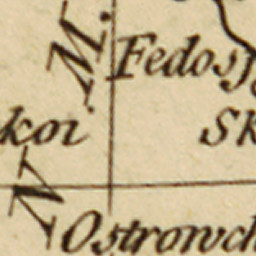 M.
Fedosj
koi
Sk
N
Ostrowch